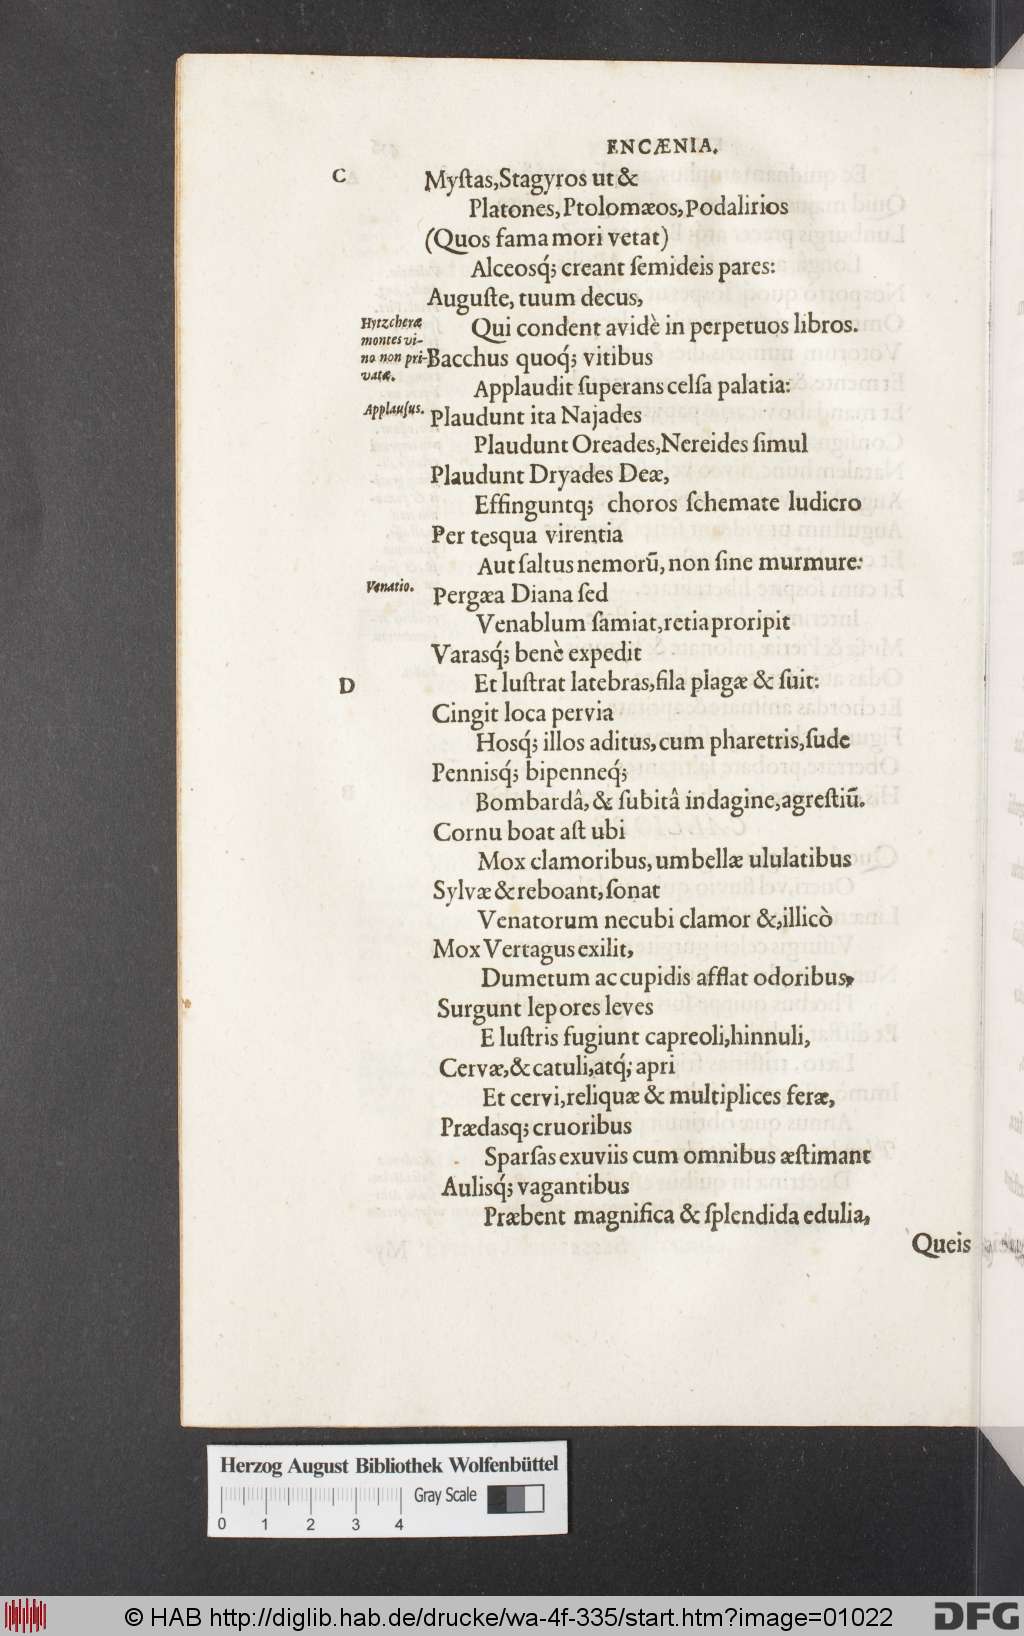 ENCÆNIA.
C
Myſtas,Stagyros ut &
Platones, Ptolomæos, Podalirios
(Quos fama mori vetat)
Alceosq́; creant ſemideis pares:
Auguſte, tuum decus,
Hytzcheræ montes vi-
no non pri-
vatæ.
Qui condent avidè in perpetuos libros.
Bacchus quoq́; vitibus
Applaudit ſuperans celſa palatia:
Applauſus.
Plaudunt ita Najades
Plaudunt Oreades,Nereides ſimul
Plaudunt Dryades Deæ,
Effinguntq; choros ſchemate ludicro
Per tesqua virentia
Aut ſaltus nemorū, non ſine murmure:
Venatio.
Pergæa Diana ſed
Venablum ſamiat,retia proripit
Varasq́; benè expedit
D
Et luſtrat latebras,fila plagæ & ſuit:
Cingit loca pervia
Hosq́; illos aditus, cum pharetris,ſude
Pennisq́; bipenneq́;
Bombardâ, & ſubitâ indagine, agreſtiū.
Cornu boat aſt ubi
Mox clamoribus, umbellæ ululatibus
Sylvæ & reboant, ſonat
Venatorum necubi clamor &,illicò
Mox Vertagus exilit,
Dumetum ac cupidis afflat odoribus,
Surgunt lepores leves
E luſtris fugiunt capreoli,hinnuli,
Cervæ,& catuli,atq́; apri
Et cervi,reliquæ & multiplices feræ,
Prædasq; cruoribus
Sparſas exuviis cum omnibus æſtimant
Aulisq́; vagantibus
Præbent magnifica & ſplendida edulia,
Queis
Herzog August Bibliothek Wolfenbüttel
Gray Scale
0 1 2 3 4
© HAB http://diglib.hab.de/drucke/wa-4f-335/start.htm?image=01022
DFG